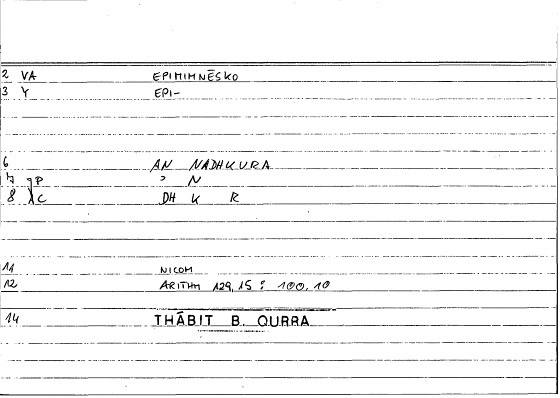 2 VA EPIMIMNĒSKO
3 Y EPI-
6 AN NADHKURA
7 P ʾ N
8 C DH K R
11 NICOM
12 ARITHM 129,15 : 100,10
14 THĀBIT B. QURRA